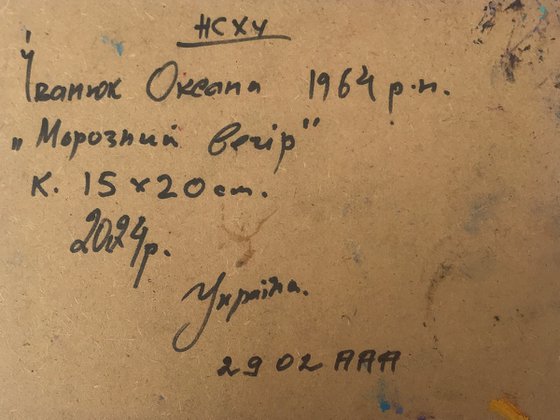 НСХУ
Іванюк Оксана 1964 р.н.
„Морозний вечір"
К. 15×20 см.
2024р.
Україна.
2902 ААА